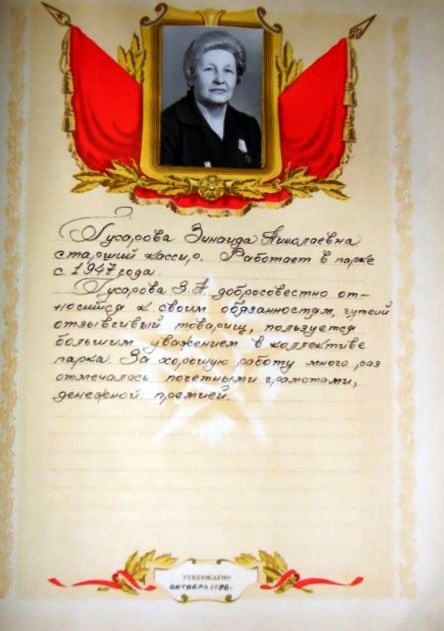 Гусарова Зинаида Николаевна
старший кассир. Работает в парке
с 1947 года.
Гусарова З.Н. добросовестно от-
носится к своим обязанностям, чуткий
отзывчивый товарищ, пользуется
большим уважением в коллективе
парка. За хорошую работу много раз
отмечалась почетными грамотами,
денежной премией.
УТВЕРЖДЕНО
ОКТЯБРЬ